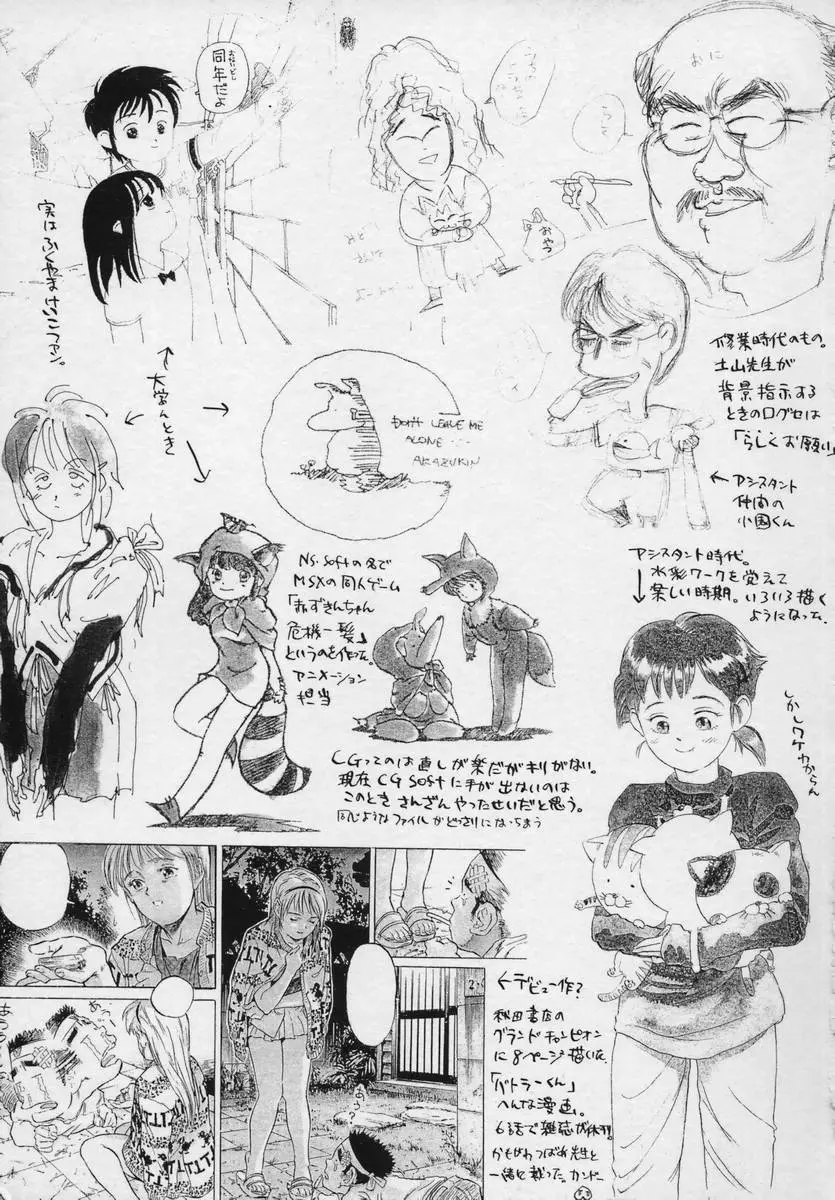 おないどし
同年だよ
実はふくやまけいこファン。
↑
大学んとき
おに
うっ
おやつ
修業時代のもの。
土山先生が
背景指示する
ときの口グセは
「らしくお願い」
←アシスタント
仲間の
小国くん
DON'T LEAVE ME
ALONE…
AKAZUKIN
NS・Softの名で
MSXの同人ゲーム
「あかずきんちゃん
危機一髪」
というのを作った。
アニメーション
担当
アシスタント時代。
水彩ワークを覚えて
楽しい時期。いろいろ描く
ようになった。
しかしワケわからん
CGってのは直しが楽だがキリがない。
現在CG Softに手が出ないのは
このとき さんざんやったせいだと思う。
同じようなファイルがどっさりになっちまう
←デビュー作?
秋田書店の
グランドチャンピオン
に8ページ描いた。
「バトラーくん」
へんな漫画。
6話で雑誌が休刊。
かもがわつばめ先生と
一緒に載った。カンドー